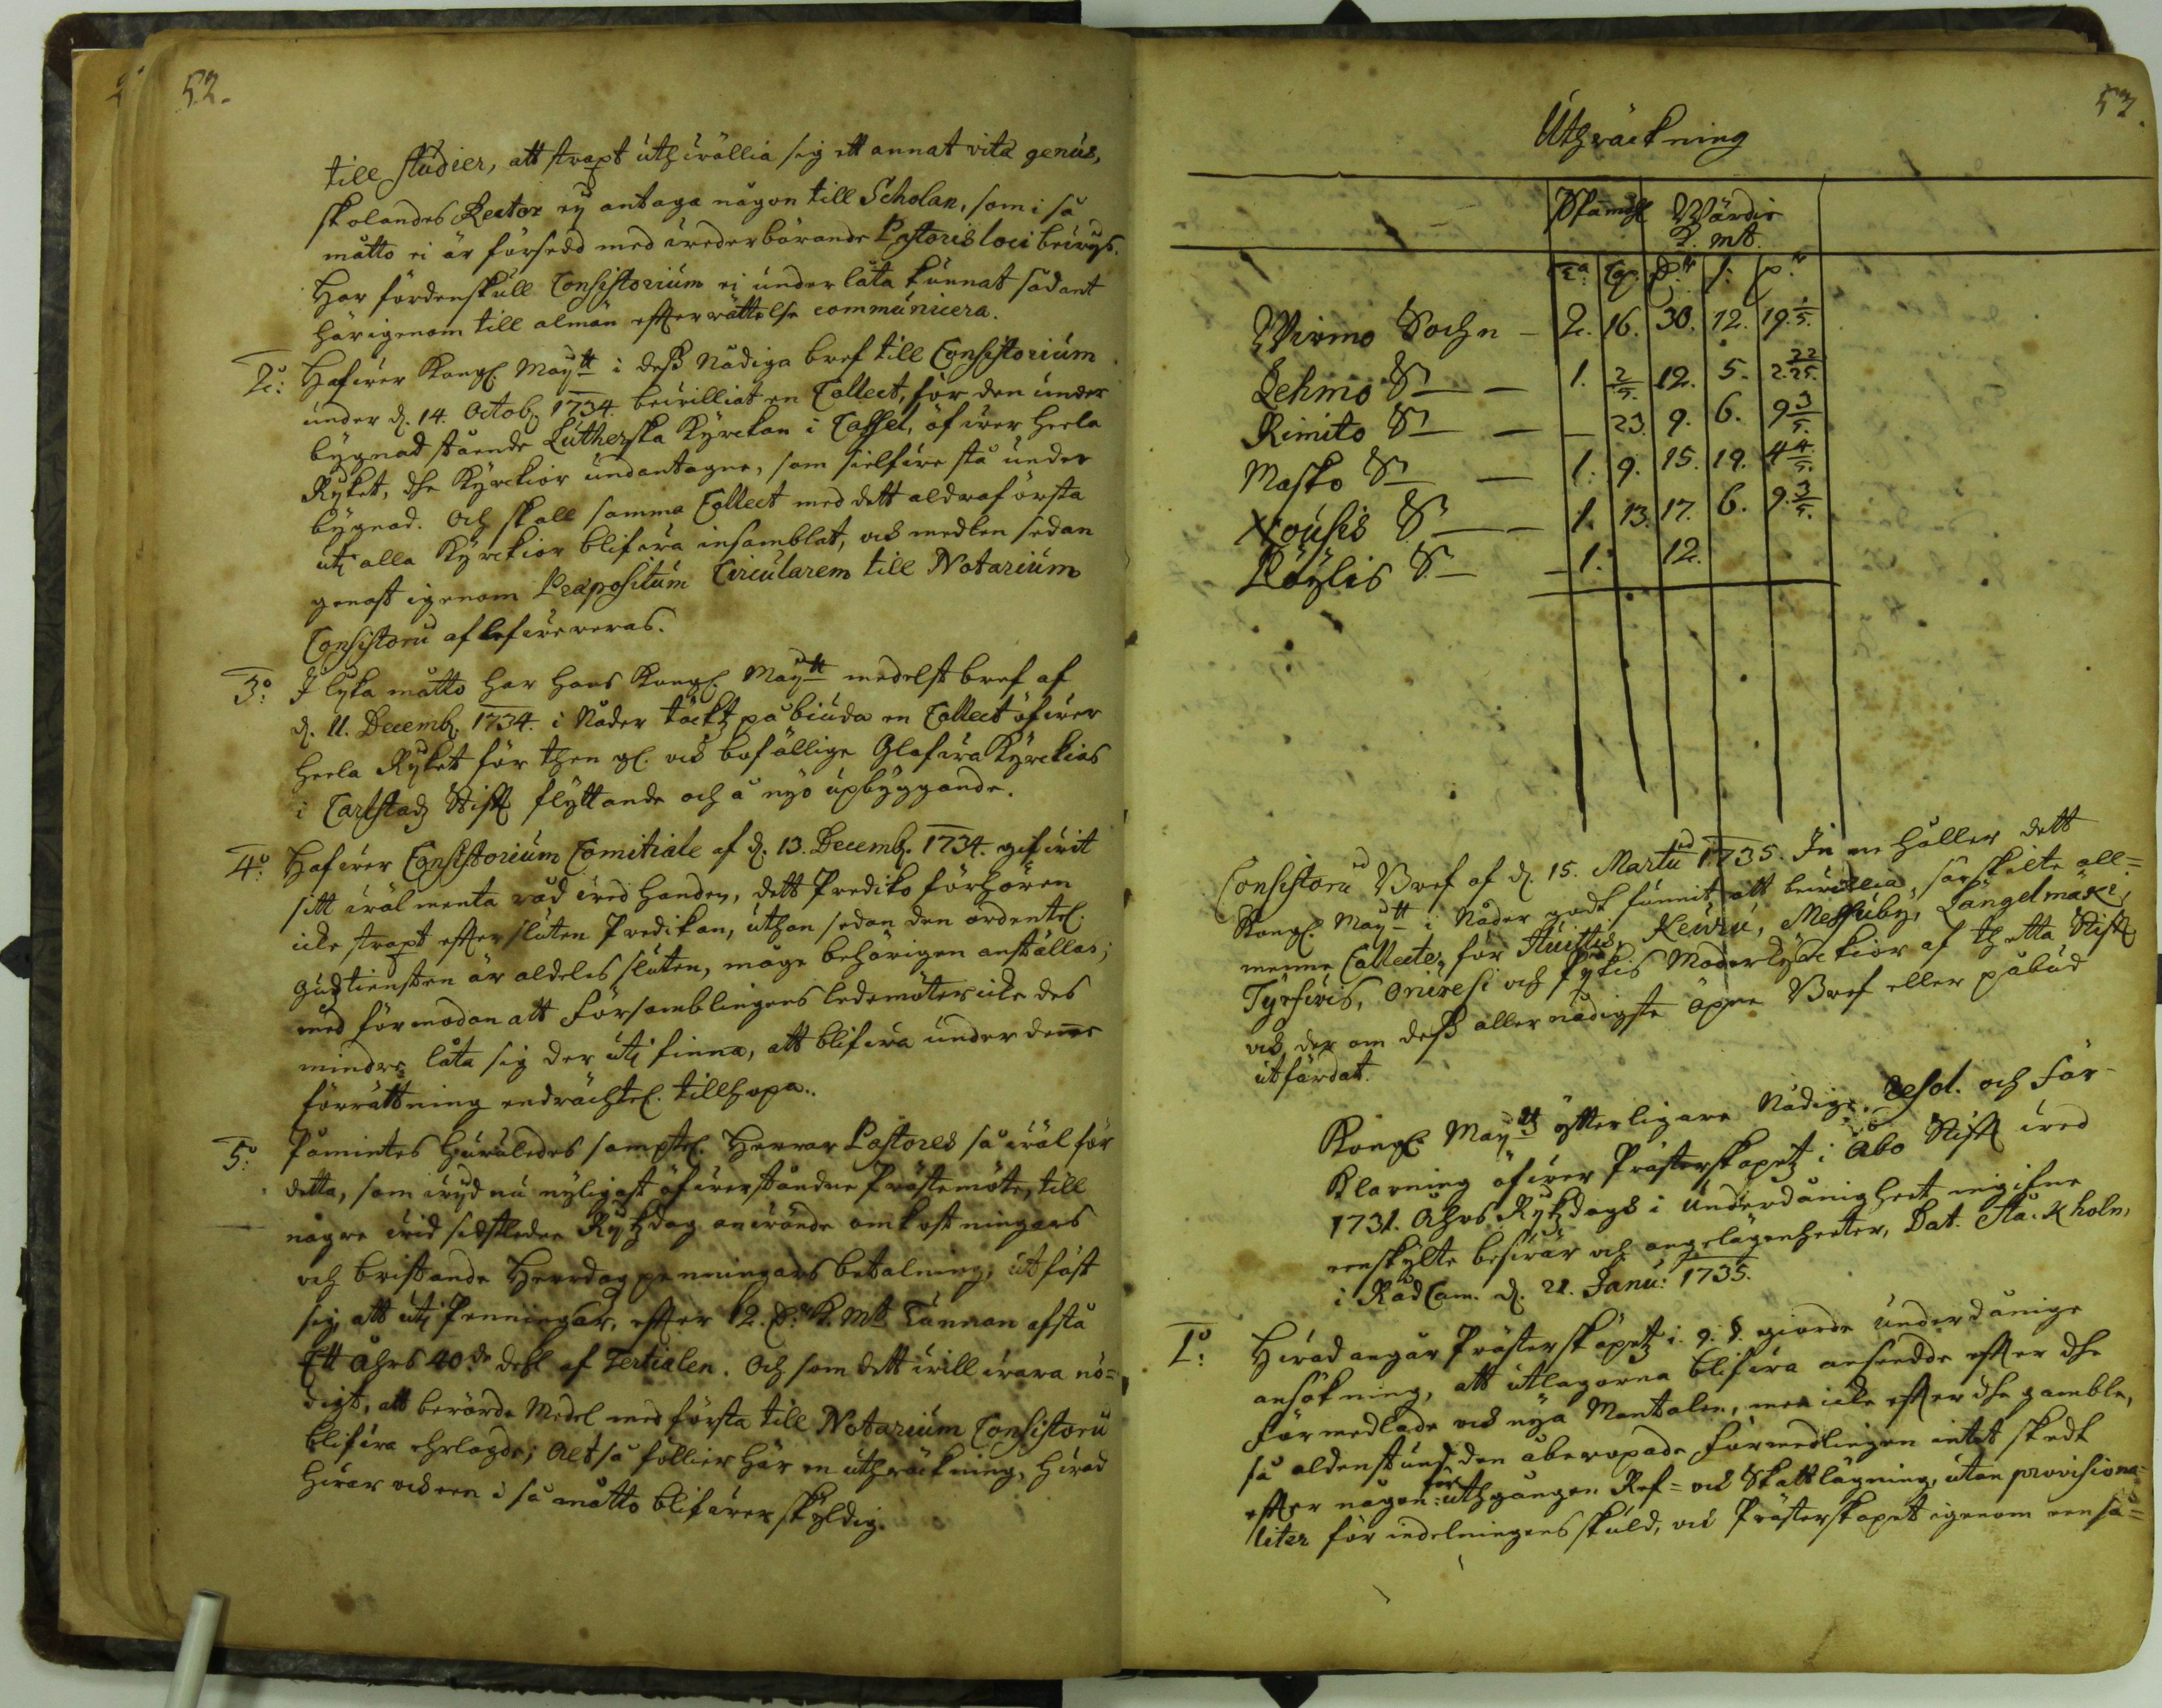 52.
till studier, att strapt uthwällia sig ett annat vitæ genus,
skolandes Rector ej antaga någon till Scholan, som i så
måtto ei är försedd med wederbörande Pastoris loci bewys.
Har fördenskull Consistorium ei underlåta kunnat sådant
härigenom till almän efterrättelse communicera.
2:o Hafwer Kongl. Maytt i dess Nådiga bref till Consistorium
under d. 14. Octob. 1734. bewilliat en Collect, för den under
bygnad stående Lutherska Kyrckan i Cassel, öfwer heela
Ryket, dhe Kyrckior undantagne, som sielfwe stå under
bygnad. Och skall samma Collect med dett aldraförsta
uti alla Kyrckior blifwa insamblat, och medlen sedan
genast igenom Præpositum Circularem till Notarium
Consistorii aflefwereras.
3:o I lyka måtto har hans Kongl. Maytt medelst bref af
d. 11. Decemb. 1734. i Nåder täckts påbiuda en Collect öfwer
heela Ryket för then gl. och bofällige Glafwa Kyrckias
i Carlstadz Stift flyttande och å nyo upbyggande.
4:o Hafwer Consistorium Comitiale af d. 13. Decemb. 1734. gifwit
sitt wälmenta råd wed handen, dett Prediko förhören
icke strapt efter sluten Predikan, uthan sedan den ordentel.
Gudztiensten är aldeles sluten, måge behörigen anställas;
med förmodan att Församblingens ledamöter icke des
mindre låta sig der uti finna, att blifwa under denne
förrättning endrächtel. tillhopa.
5:o Påmintes huruledes samptel. Herrar Pastores så wäl för
detta, som wyd nu nyligast öfwerståndne Prästemöte, till
någre wid sidstledne Rykzdag anwände omkostningars
och bristande Herredagzpenningars betalning, utfäst
sig att uti Penningar, efter 12. D:r K. Mt Tunnan afstå
Ett åhrs 40.de dehl af Tertialen. Och som dett will wara nö=
digt, att berörde Medel med första till Notarium Consistorii
blifwa erlagde; Altså föllier här en uthräckning, hwad
hwar och een i så måtto blifwer skyldig.
53.
Uthräckning
Spannmåhl Wärdie
K. mt.
T:a Cp. D:r s. p:r
Wirmo Sochn - 2. 16. 30. 12. 19. 1/5.
Lehmo S - 1. 2/5. 12. 5. 2. 22/25.
Rimito S - - 23. 9. 6. 9 3/5.
Masko S - 1. 9. 15. 19. 4 4/5.
Nousis S - 1. 13. 17. 6. 9. 3/5.
Pöylis S. - 1. 12.
Consistorii Bref af d. 15. Martii 1735. In me håller dett
Kongl. Maytt i Nåder godt funnit, att bewillia, särskilte all=
menne Collecter för Huittis, Keuru, Messuby, Längelmäki,
Tyrfwis, Oriwesi och Pykis Moderkyrckior af thetta Stift
och der om dess aller nådigste öpne Bref eller påbud
utfärdat.
Kongl. May:tz ytterligare Nådige Resol. och För-
klarning öfwer Prästerskapetz i Åbo Stift wed
1731. Åhrs Rykzdags i Underdånighet ingifne
enskylte beswär och angelägenheeter, Dat. Ståckholm,
i Råd Cam. d. 21. Janu: 1735.
1:o Hwad angår Prästerskapetz i 9. §. giorde underdånige
ansökning, att utlagorna blifwa ansedde efter dhe
förmedlade och nya Mantalen, men icke efter dhe gamble,
så aldenstund den åberopade förmedlingen intet skedt
efter någon för:uthgången Ref= och Skattlägning, utan provisiona=
liter för indelningens skuld, och Prästerskapet igenom een så=